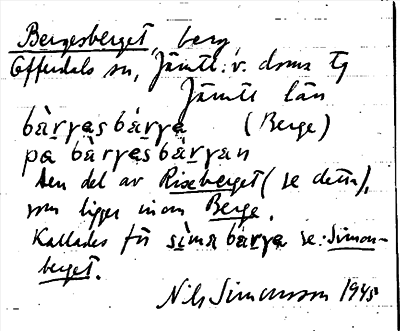 Bergesberget, berg
Offerdals sn, Jämtl. v. doms tg
Jämtl län
bàrgasbárga (Berge)
pa bàrgasbárgan
Den del av Riseberget (se detta),
som ligger inom Berge.
Kallades för sima bárga se: Simon-
berget.
Nils Simonsson 1945